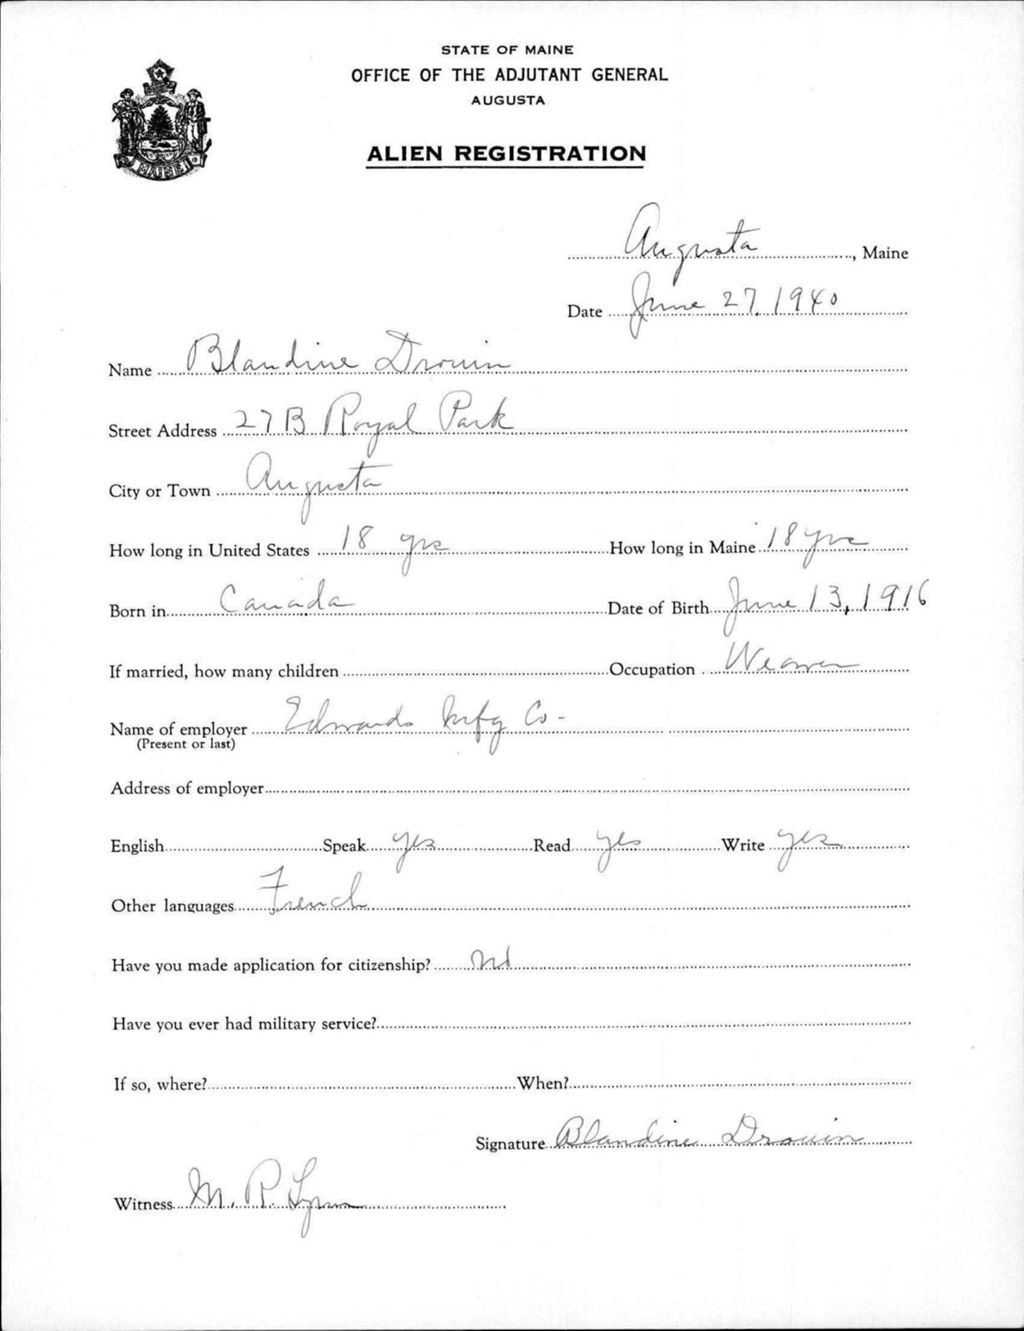 STATE OF MAINE
OFFICE OF THE ADJUTANT GENERAL
AUGUSTA
ALIEN REGISTRATION
MAINE
Augusta, Maine
Date June 27, 1940
Name Blandine Drouin
Street Address 27B Royal Park
City or Town Augusta
How long in United States 18 yrs How long in Maine 18 yrs
Born in Canada Date of Birth June 13, 1916
If married, how many children Occupation Weaver
Name of employer Edwards Mfg Co-
(Present or last)
Address of employer
English Speak yes Read yes Write yes
Other languages French
Have you made application for citizenship? No
Have you ever had military service?
If so, where? When?
Signature Blandine Drouin
Witness M. R. Lynn